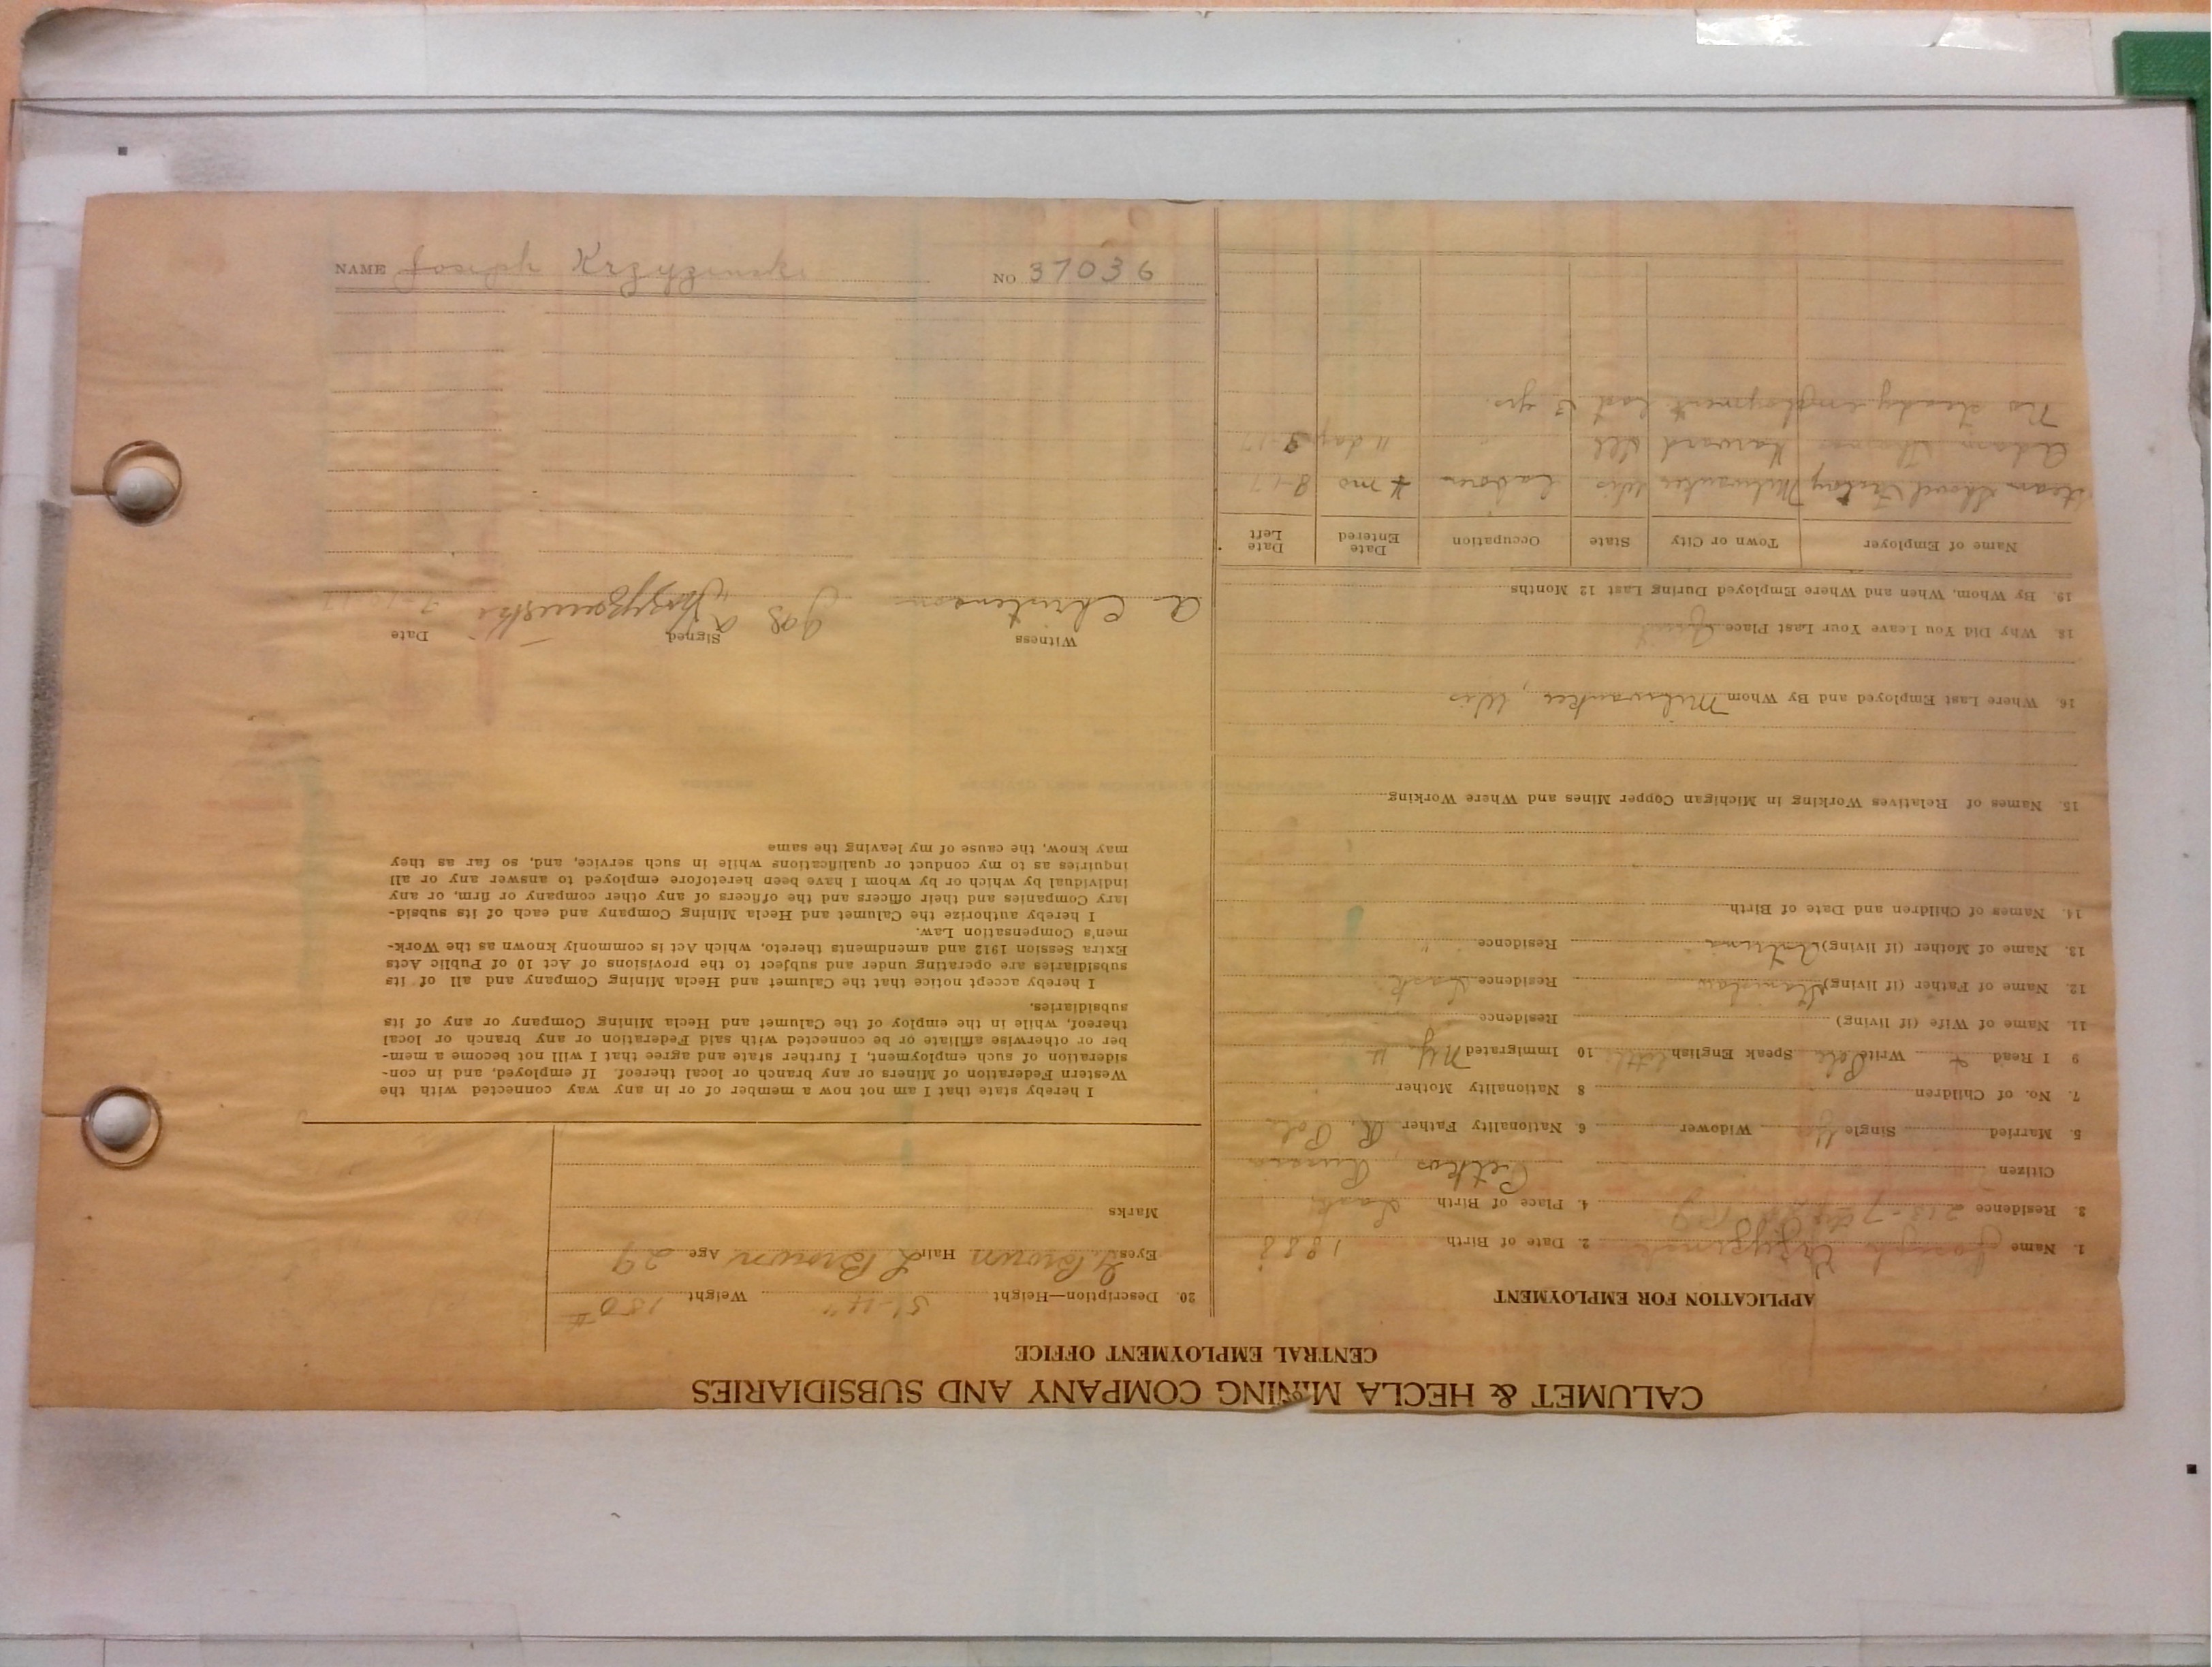 CALUMET & HECLA MINING COMPANY AND SUBSIDIARIES
CENTRAL EMPLOYMENT OFFICE
APPLICATION FOR EMPLOYMENT
1. Name Joseph Krzyzinski 2. Date of Birth 1888
3. Residence 4. Place of Birth
Citizen Russia
5. Married Single Widower 6 Nationality Father R. Pole
7. No. of Children 8 Nationality Mother
9 I Read Write Speak English little 10 Immigrated N.Y.
11. Name of Wife (if living) Residence
12. Name of Father (if living) Stanislaw Residence
13. Name of Mother (if living) Residence "
14. Names of Children and Date of Birth
15. Names of Relatives Working in Michigan Copper Mines and Where Working
16. Where Last Employed and By Whom Milwaukee, Wis
18. Why Did You Leave Your Last Place Quit
19. By Whom, When and Where Employed During Last 12 Months
Name of Employer Town or City State Occupation Date Entered Date Left
Steam Shovel Milwaukee Wis Labor 4 mo 8-17
Adam Harvard Ill " 11 day 9-17
No steady employment last 3 yrs.
20. Description—Height 5'-4" Weight 150#
Eyes Brown Hair L Brown Age 29
Marks
I hereby state that I am not now a member of or in any way connected with the
Western Federation of Miners or any branch or local thereof. If employed, and in con-
sideration of such employment, I further state and agree that I will not become a mem-
ber or otherwise affiliate or be connected with said Federation or any branch or local
thereof, while in the employ of the Calumet and Hecla Mining Company or any of its
subsidiaries.
I hereby accept notice that the Calumet and Hecla Mining Company and all of its
subsidiaries are operating under and subject to the provisions of Act 10 of Public Acts
Extra Session 1912 and amendments thereto, which Act is commonly known as the Work-
men's Compensation Law.
I hereby authorize the Calumet and Hecla Mining Company and each of its subsid-
iary Companies and their officers and the officers of any other company or firm, or any
individual by which or by whom I have been heretofore employed to answer any or all
inquiries as to my conduct or qualifications while in such service, and, so far as they
may know, the cause of my leaving the same
Witness Signed Date
A Christenson Jos
NAME Joseph Krzyzinski NO 37036